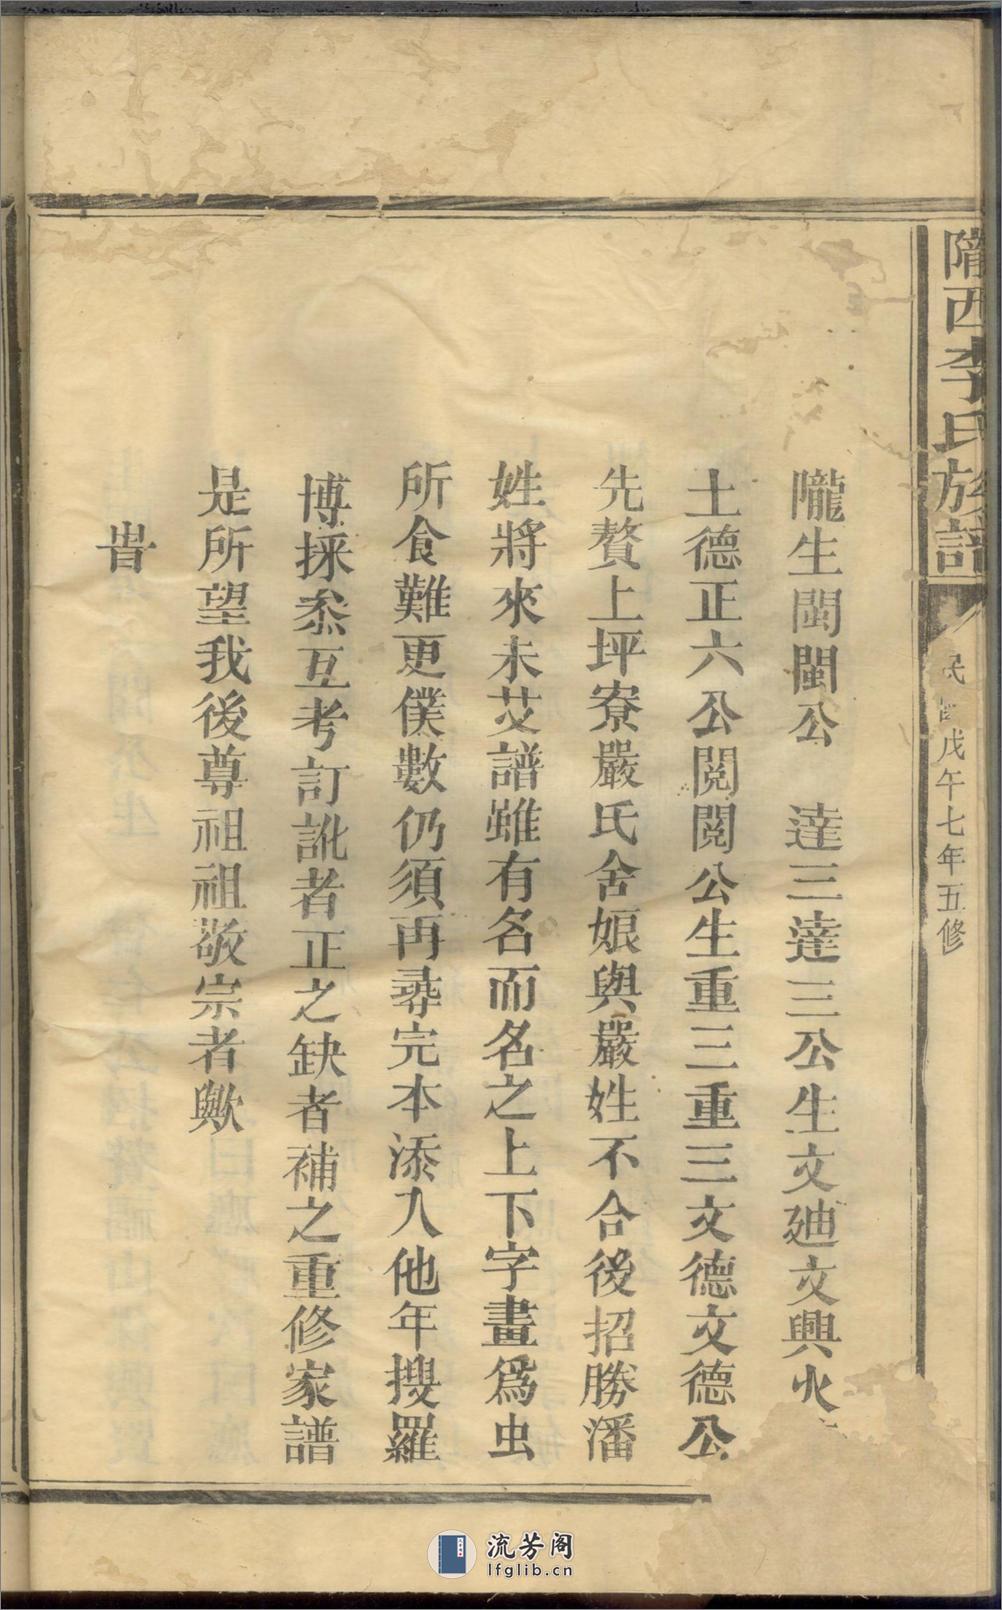 隴西李氏族譜
民國戊午七年五修
隴生閩閩公 達三達三公生文廸文興火
土德正六公閱閱公生重三重三文德文德公
先贅上坪寮嚴氏舍娘與嚴姓不合後招勝潘
姓將來未艾譜雖有名而名之上下字畫為虫
所食難更僕數仍須再尋完本添入他年搜羅
博採叅互考訂訛者正之缺者補之重修家譜
是所望我後尊祖祖敬宗者歟
旹
流芳阁
lfglib.cn